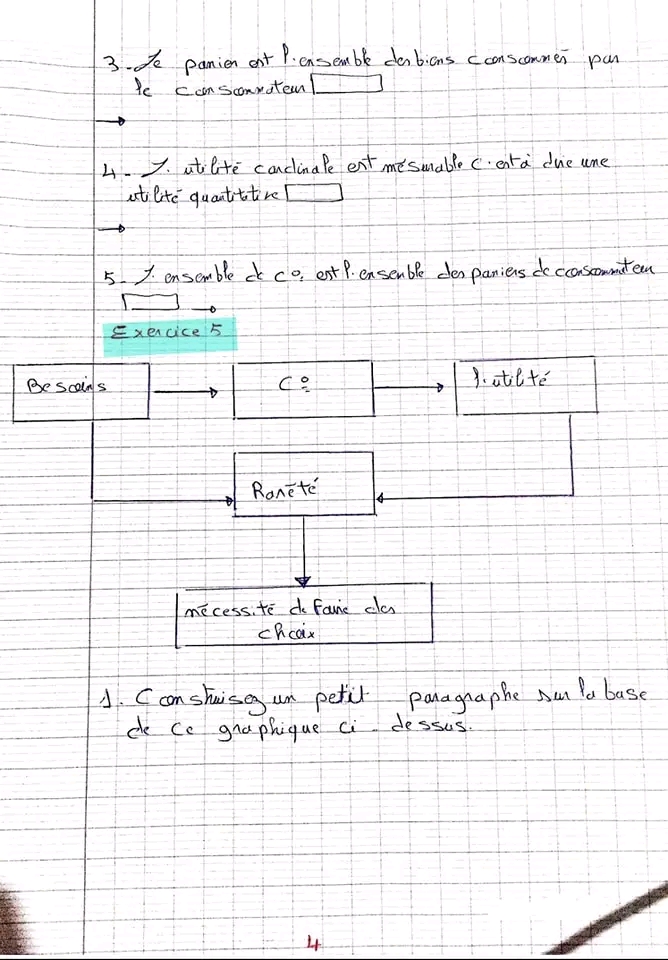 3 - Le panier est l'ensemble des biens consommés par
le consommateur
→
4 - L'utilité cardinale est mésurable c'est à dire une
utilité quantitative
→
5 - L'ensemble de c° est l'ensemble des paniers de consommateur
→
Exercice 5
Besoins → C° → L'utilité
Rarêté
nécessité de faire des
choix
1. Construisez un petit paragraphe sur la base
de ce graphique ci-dessus.
4